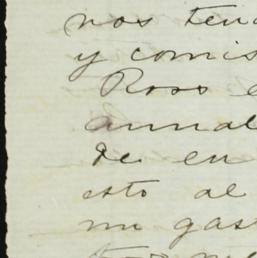 nos tend
y comis
Ross e
annal
de en
esto al
un gas